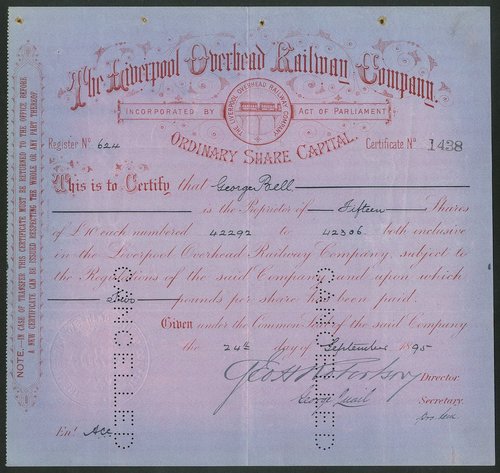 The Liverpool Overhead Railway Company,
INCORPORATED BY ACT OF PARLIAMENT
THE LIVERPOOL OVERHEAD RAILWAY COMPANY
ORDINARY SHARE CAPITAL.
Register No 624 Certificate No 1438
This is to Certify that George Bell
is the Proprietor of Fifteen Shares
of £10 each numbered 42292 to 42306 both inclusive
in the Liverpool Overhead Railway Company, subject to
the Regulations of the said Company and upon which
pounds per share has been paid.
Given under the Common Seal of the said Company
the 24th day of September 1895
Director.
George Quail Secretary.
Ent
CANCELLED
CANCELLED
NOTE.—IN CASE OF TRANSFER THIS CERTIFICATE MUST BE RETURNED TO THE OFFICE BEFORE
A NEW CERTIFICATE CAN BE ISSUED RESPECTING THE WHOLE OR ANY PART THEREOF